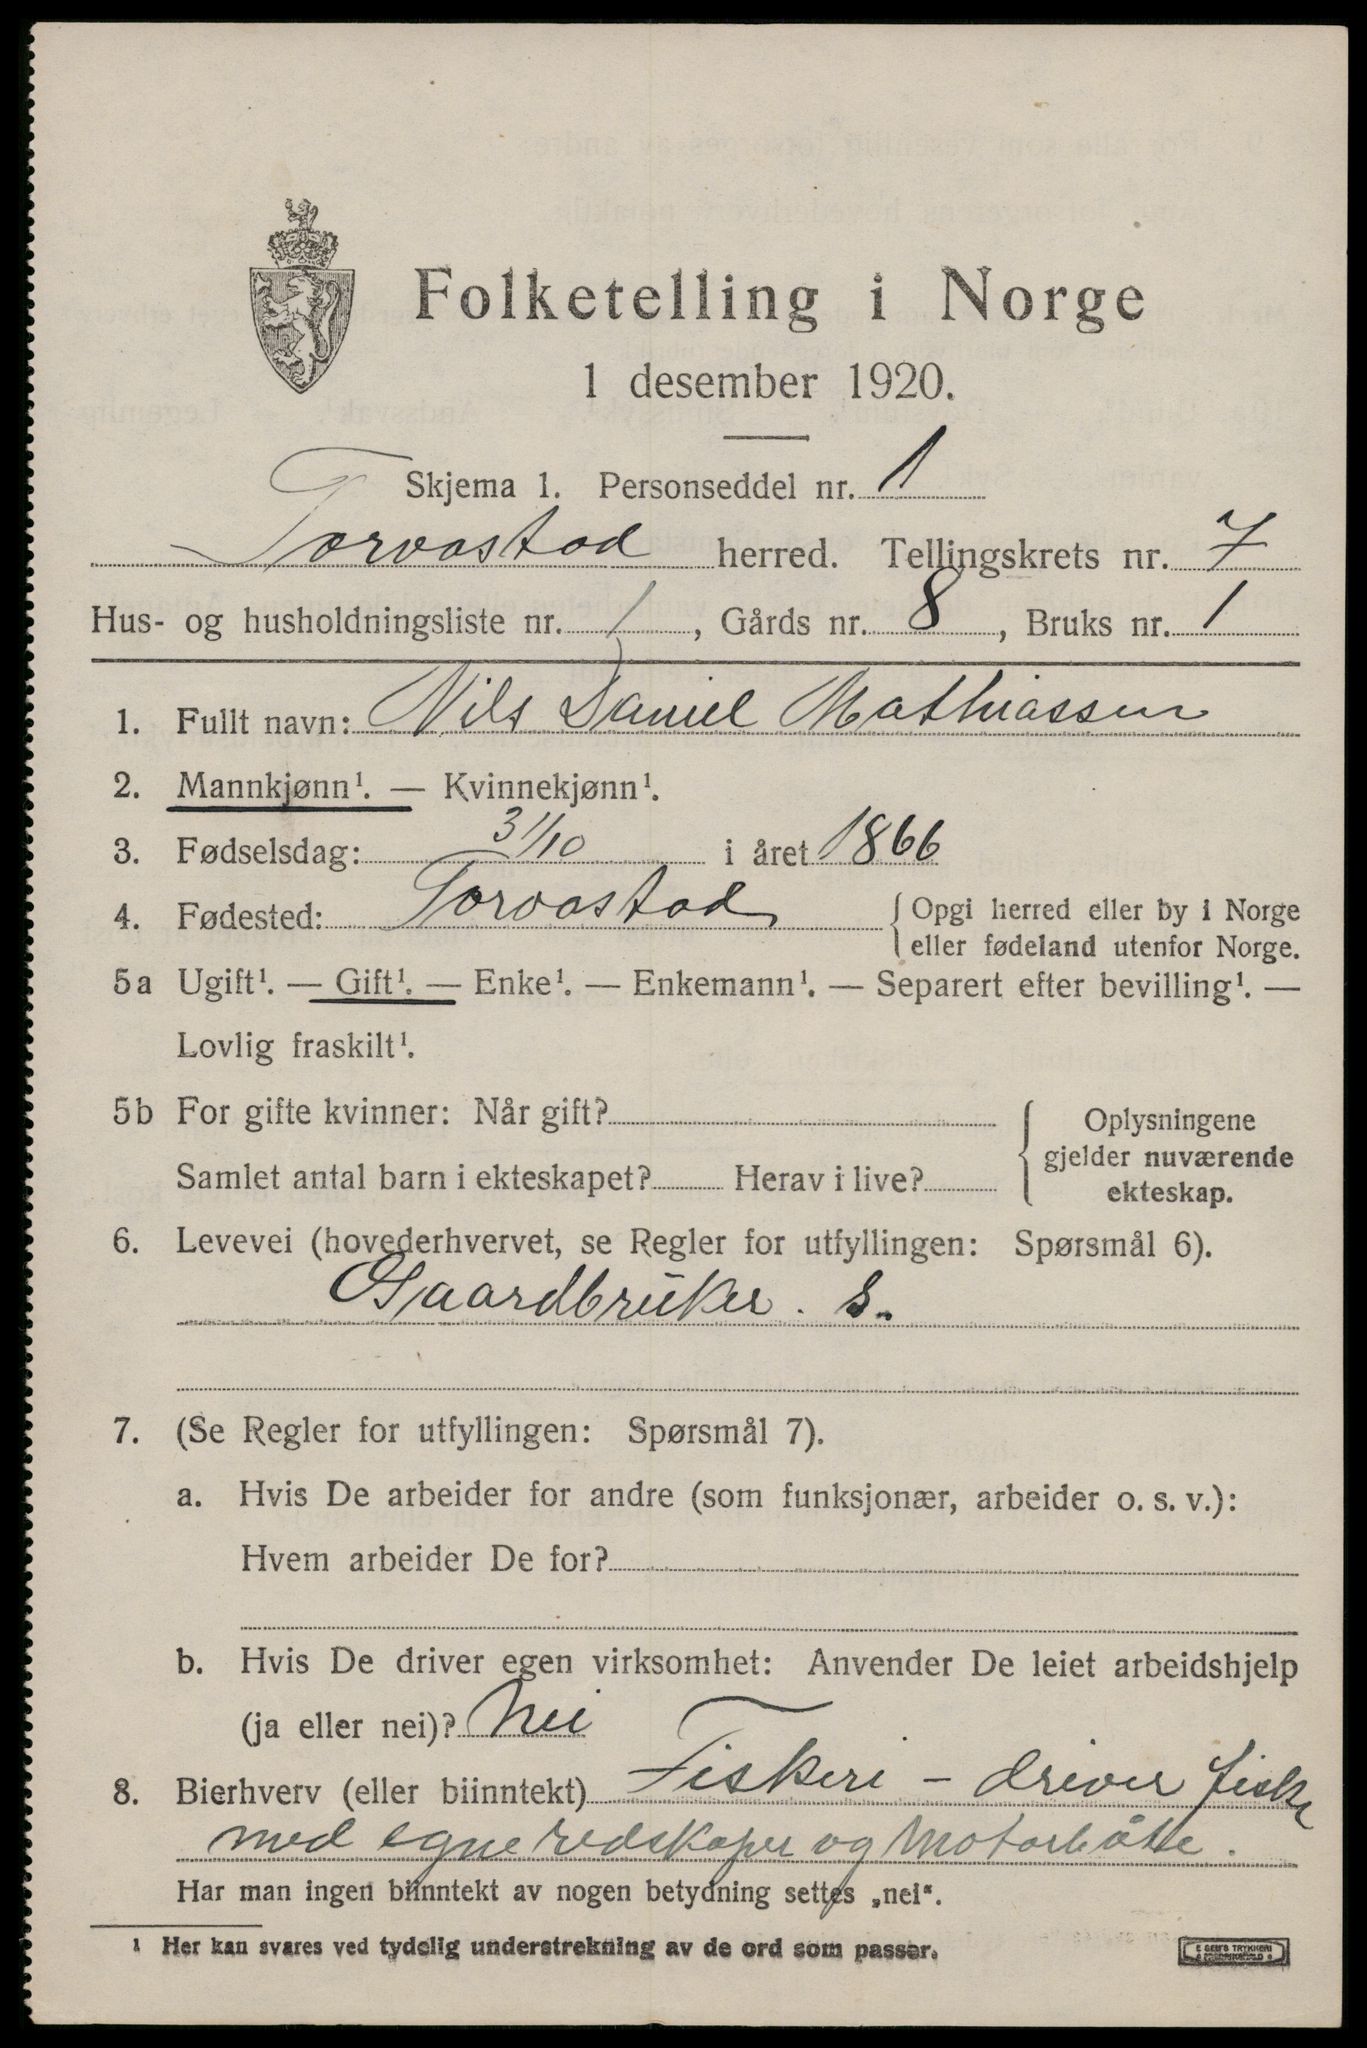 Folketelling i Norge
1 desember 1920.
Skjema 1. Personseddel nr. 1
Torvastad herred. Tellingskrets nr. 7
Hus- og husholdningsliste nr. 1, Gårds nr. 8, Bruks nr. 1
1. Fullt navn: Nils Daniel Mathiassen
2. Mannkjønn¹. — Kvinnekjønn¹.
3. Fødselsdag: 31/10 i året 1866
4. Fødested: Torvastad { Opgi herred eller by i Norge
eller fødeland utenfor Norge.
5a Ugift¹. — Gift¹. — Enke¹. — Enkemann¹. — Separert efter bevilling¹. —
Lovlig fraskilt¹.
5b For gifte kvinner: Når gift? { Oplysningene
gjelder nuværende
Samlet antal barn i ekteskapet? Herav i live?
ekteskap.
6. Levevei (hovederhvervet, se Regler for utfyllingen: Spørsmål 6).
Gaardbruker. S.
7. (Se Regler for utfyllingen: Spørsmål 7).
a. Hvis De arbeider for andre (som funksjonær, arbeider o. s. v.):
Hvem arbeider De for?
b. Hvis De driver egen virksomhet: Anvender De leiet arbeidshjelp
(ja eller nei)? Nei
8. Bierhverv (eller biinntekt) Fiskeri – driver fiske
med egne redskaper og Motorbåtte.
Har man ingen biinntekt av nogen betydning settes „nei“.
¹ Her kan svares ved tydelig understrekning av de ord som passer.